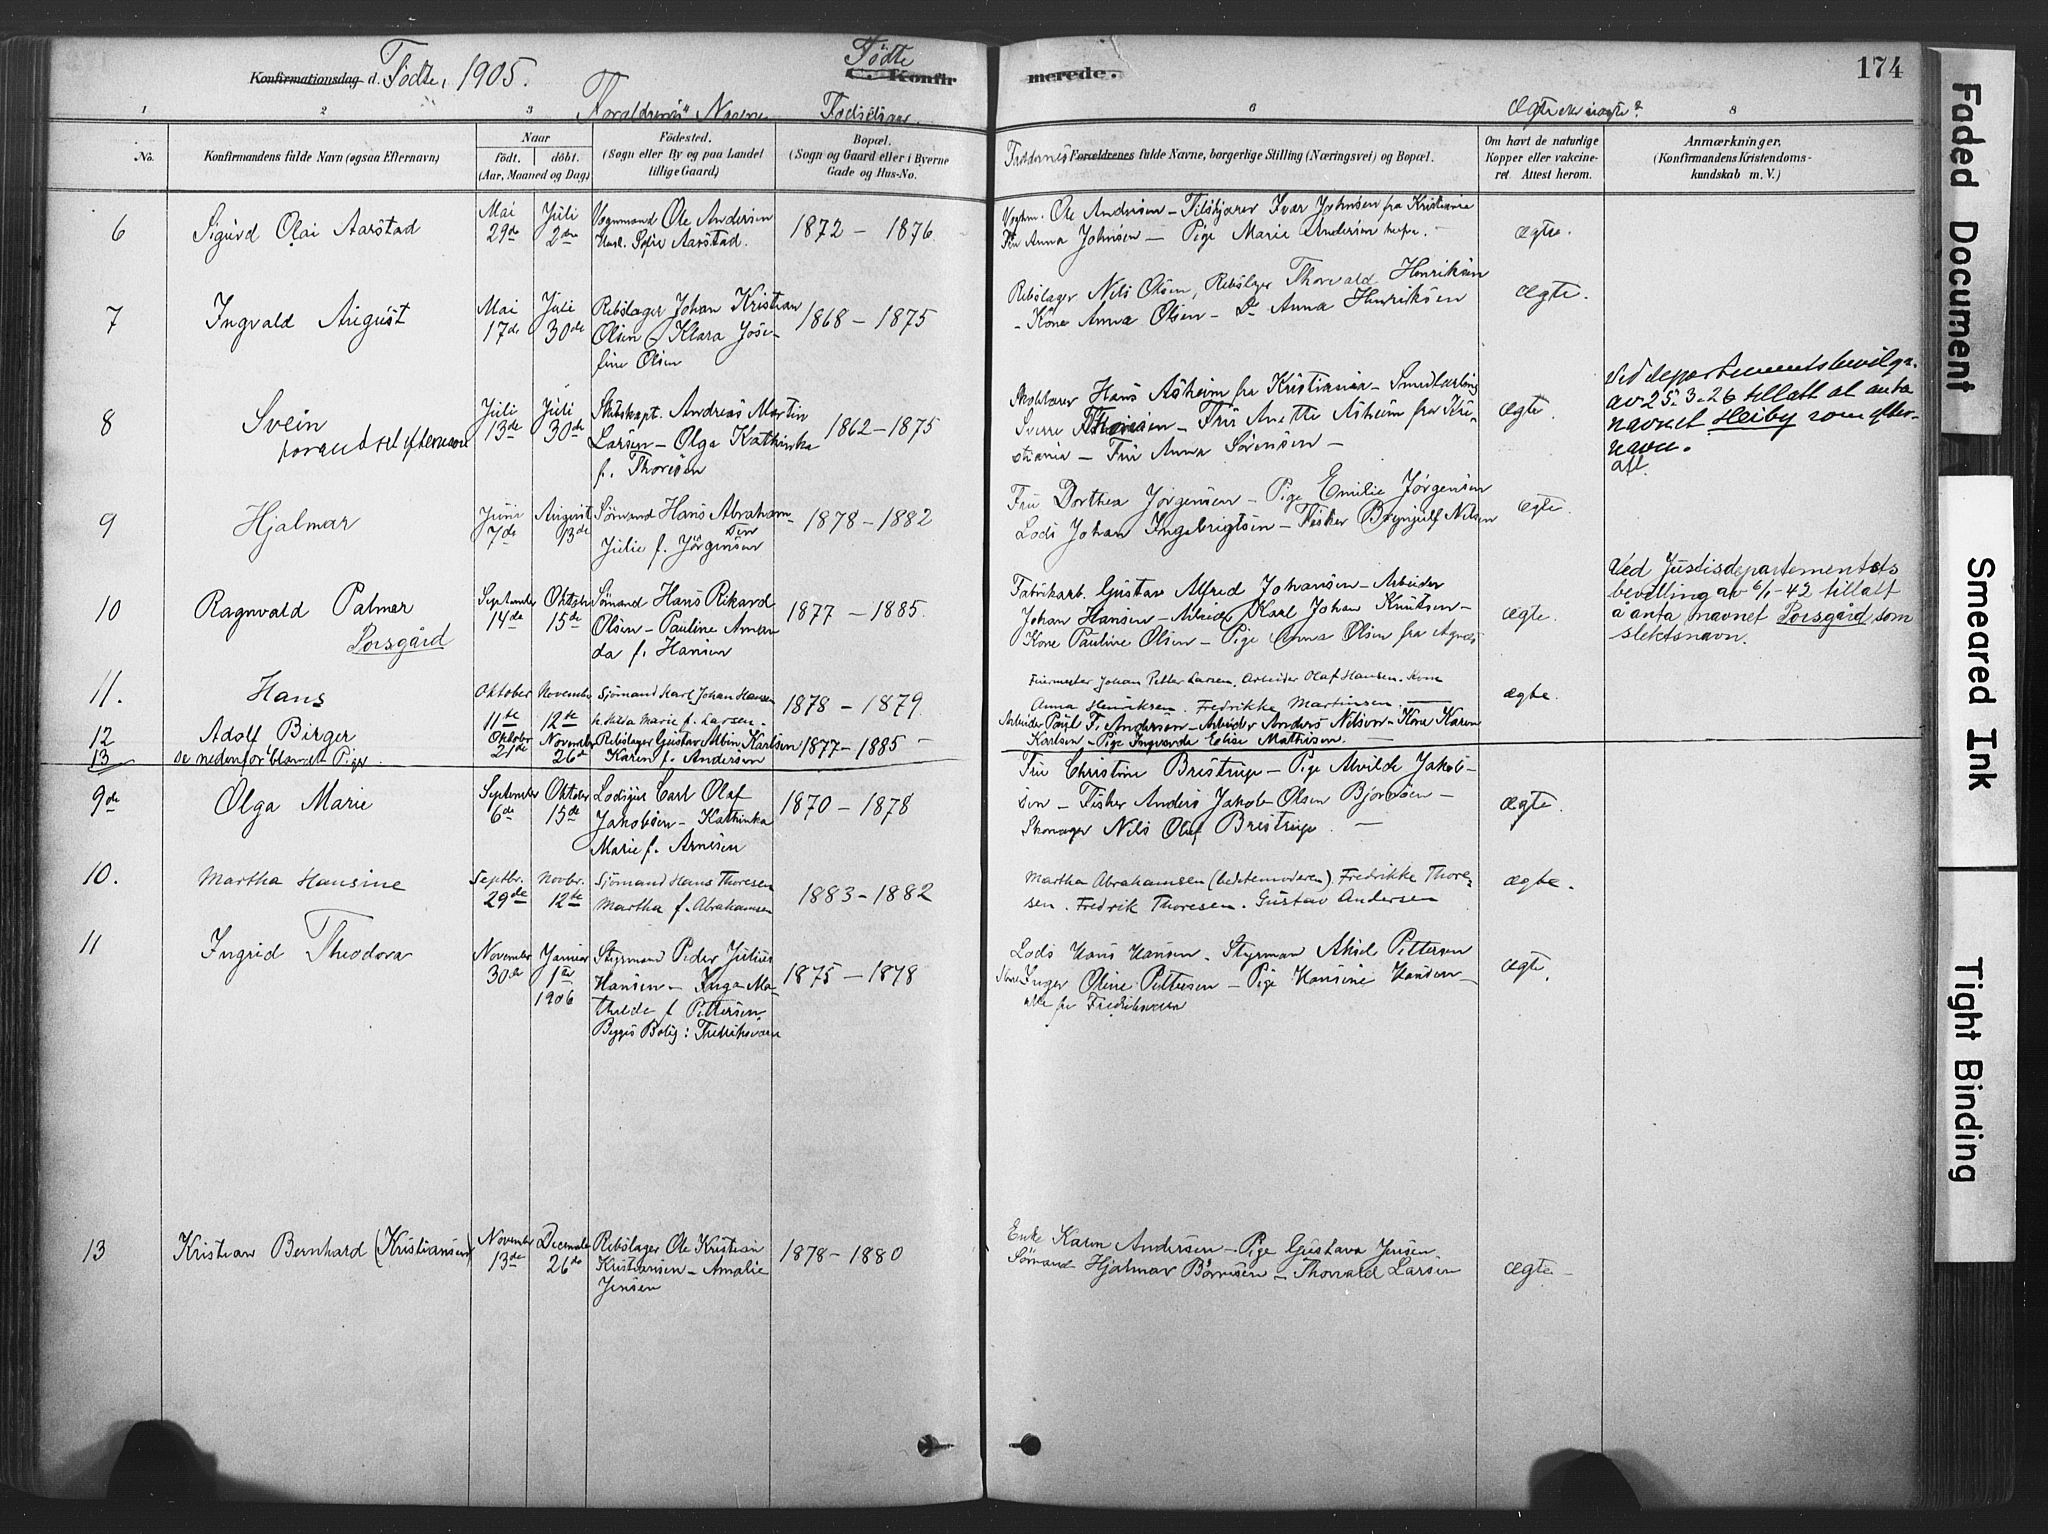 Konfirmationsdag d. Födte, 1905.
Födte
C. Konfirmerede.
174
1 2 3 6 8
Forældrenes Navne Födselsaar. Ægte eller uægte?
No.
Konfirmandens fulde Navn (ogsaa Efternavn)
Naar
födt. döbt.
(Aar, Maaned og Dag)
Födested.
(Sogn eller By og paa Landet tillige Gaard)
Bopæl.
(Sogn og Gaard eller i Byerne Gade og Hus-No.
Faddernes Forældrenes fulde Navne, borgerlige Stilling (Næringsvei) og Bopæl.
Om havt de naturlige Kopper eller vakcineret. Attest herom.
Anmærkninger,
(Konfirmandens Kristendomskundskab m. V.)
6 Sigurd Olai Aarstad
Mai 29de
Juli 2den
Vognmand Ole Andersen
Sofie Aarstad.
1872 – 1876.
Ole Andersen – Ivar Johnsen fra Kristiania
Fru Anna Johnsen – Pige Marie Andersen
ægte.
7 Ingvald August
Mai 17de
Juli 30de
Rebslager Johan Kristian
Olsen – Klara Jose-
fine Olsen
1868 – 1875
Rebslager Nils Olsen, Rebslager Thorvald Henriksen
– Kone Anna Olsen – Do Anna Henriksen
Ægte.
8 Svein
forandret efternavn
Juli 13de
Juli 30de
Skibskapt. Andreas Martin
Larsen – Olga Kathinka
f. Thoresen
1862 – 1875
Skolelærer Hans Asheim fra Kristiania – Smedlærling
Sverre Thoresen – Fru Anette Asheim fra Kri-
stiania – Fru Anna Sörensen –
ægte.
Ved departementsbevilgn.
av 25.3.26 tillatt at anta
navnet Heiby som efter-
navn.
9 Hjalmar
Juni 7de
August 13de
Sömand Hans Abraham-
sen
Julie f. Jörgensen
1878 – 1882
Fru Dorthea Jörgensen – Pige Emilie Jörgensen
Lods Johan Ingebrigtsen – Fisker Brynjulf Nilsen
ægte.
10 Ragnvald Palmer
Porsgård
September 14de
Oktober 15de
Sömand Hans Rikard
Olsen – Pauline Aman
da f. Hansen
1877 – 1885.
Fabrikarb. Gustav Alfred Johansen – Arbeider
Johan Hansen – Arbeider Karl Johan Knutsen –
Kone Pauline Olsen – Pige Anna Olsen fra
ægte.
Ved Justisdepartementets
bevilling av 6/1-42 tillatt
å anta navnet Porsgård som
slektsnavn.
11. Hans
Oktober 11te
November 12te
Sjömand Karl Johan Hansen
Hilda Marie f. Larsen.
1878 – 1879.
Johan Petter Larsen. Arbeider Olaf Hansen. Kone
Anna Henriksen. Fredrikke Martinsen. –
ægte.
12 Adolf Birger
Oktober 21de
November 26de
Rebslager Gustav Albin Karlsen
Karen f. Andersen
1877 – 1885 –
Arbeider Paul F. Andersen – Arbeider Anders Nilsen – Kone Karen
Karlsen – Pige Ingvarda Elise Mathisen. –
13 se nedenfor blandt Piger.
9de Olga Marie
September 6de
Oktober 15de
Carl Olaf
Jakobsen – Kathinka
Marie f. Arnesen
1870 – 1878
Fru Christine Brestrup – Pige Alvilde Jakob-
sen – Fisker Anders Jakob Olsen –
Nils Olaf Brestrup. –
ægte.
10. Martha Hansine
Septbr. 29de
Novbr. 12te
Sjömand Hans Thoresen
Martha f. Abrahamsen
1883 – 1882
Martha Abrahamsen (bedstemoderen). Fredrikke Thore-
sen. Fredrik Thoresen. Gustav Andersen
ægte.
11 Ingrid Theodora
November 30te
Januar 1ste 1906
Styrmand Peder Julius
Hansen – Inga Ma-
thilde f. Pettersen
Begges Bolig: Fredriksværn
1875 – 1878
Lods Hans Hansen. Styrman Aksel Pettersen
Inger Oline Pettersen – Pige Hansine Hansen –
alle fra Fredriksværn
ægte.
13 Kristian Bernhard (Kristiansen)
November 13de
December 26de
Rebslager Ole Kristian
Kristiansen – Amalie
Jensen
1878 – 1880
Enke Karen Andersen – Pige Gustava Jensen
Sömand Hjalmar Börresen – Thorvald Larsen
ægte –
Faded Document
Smeared Ink
Tight Binding